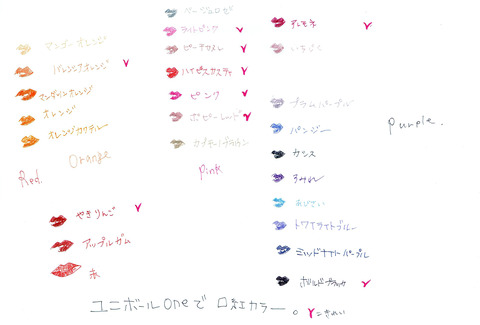 マンゴーオレンジ
バレンシアオレンジ
マンダリンオレンジ
オレンジ
オレンジカクテル
Orange
Red.
やきりんご
アップルガム
赤
ベージュロゼ
ライトピンク
ピーチカメレ
ハイビスカスティ
ピンク
ポピーレッド
カメオブラウン
Pink
アレモネ
いちごく
プラムパープル
パンジー
カシス
すみれ
あじさい
トワイライトブルー
ミッドナイトパープル
ボルドーブラック
Purple.
ユニボールoneで口紅カラー。
Y=きれい